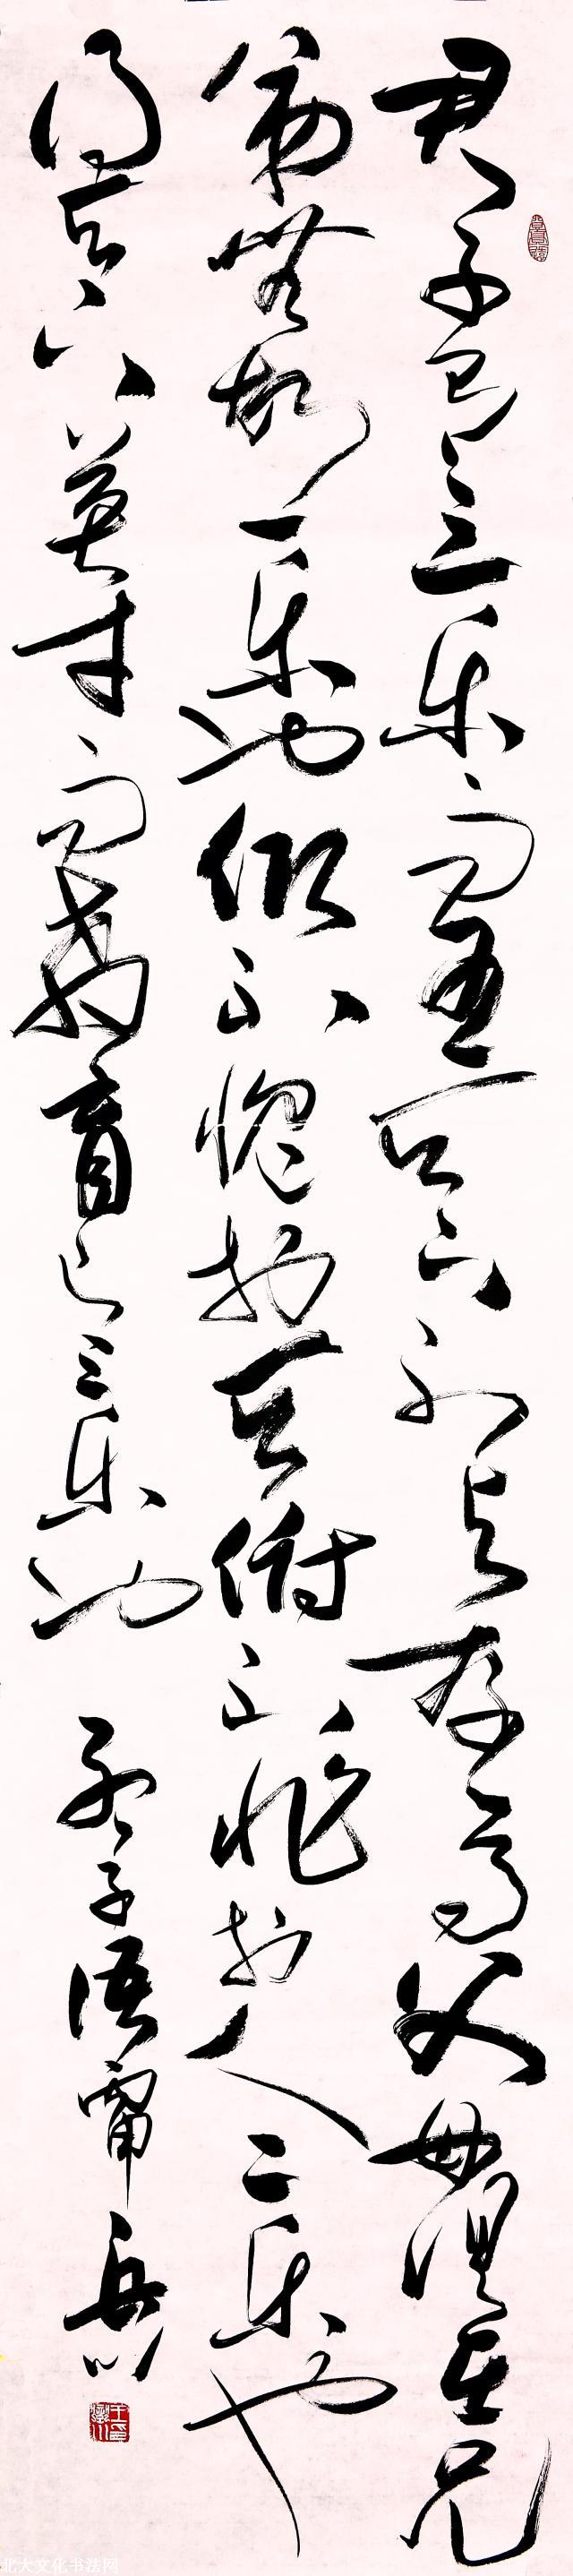 君子有三乐而王天下不与存焉父母俱在兄
弟無故一乐也仰不愧於天俯不怍於人二乐也
得天下英才而教育之三乐也 孟子语 岳川
北大文化书法网